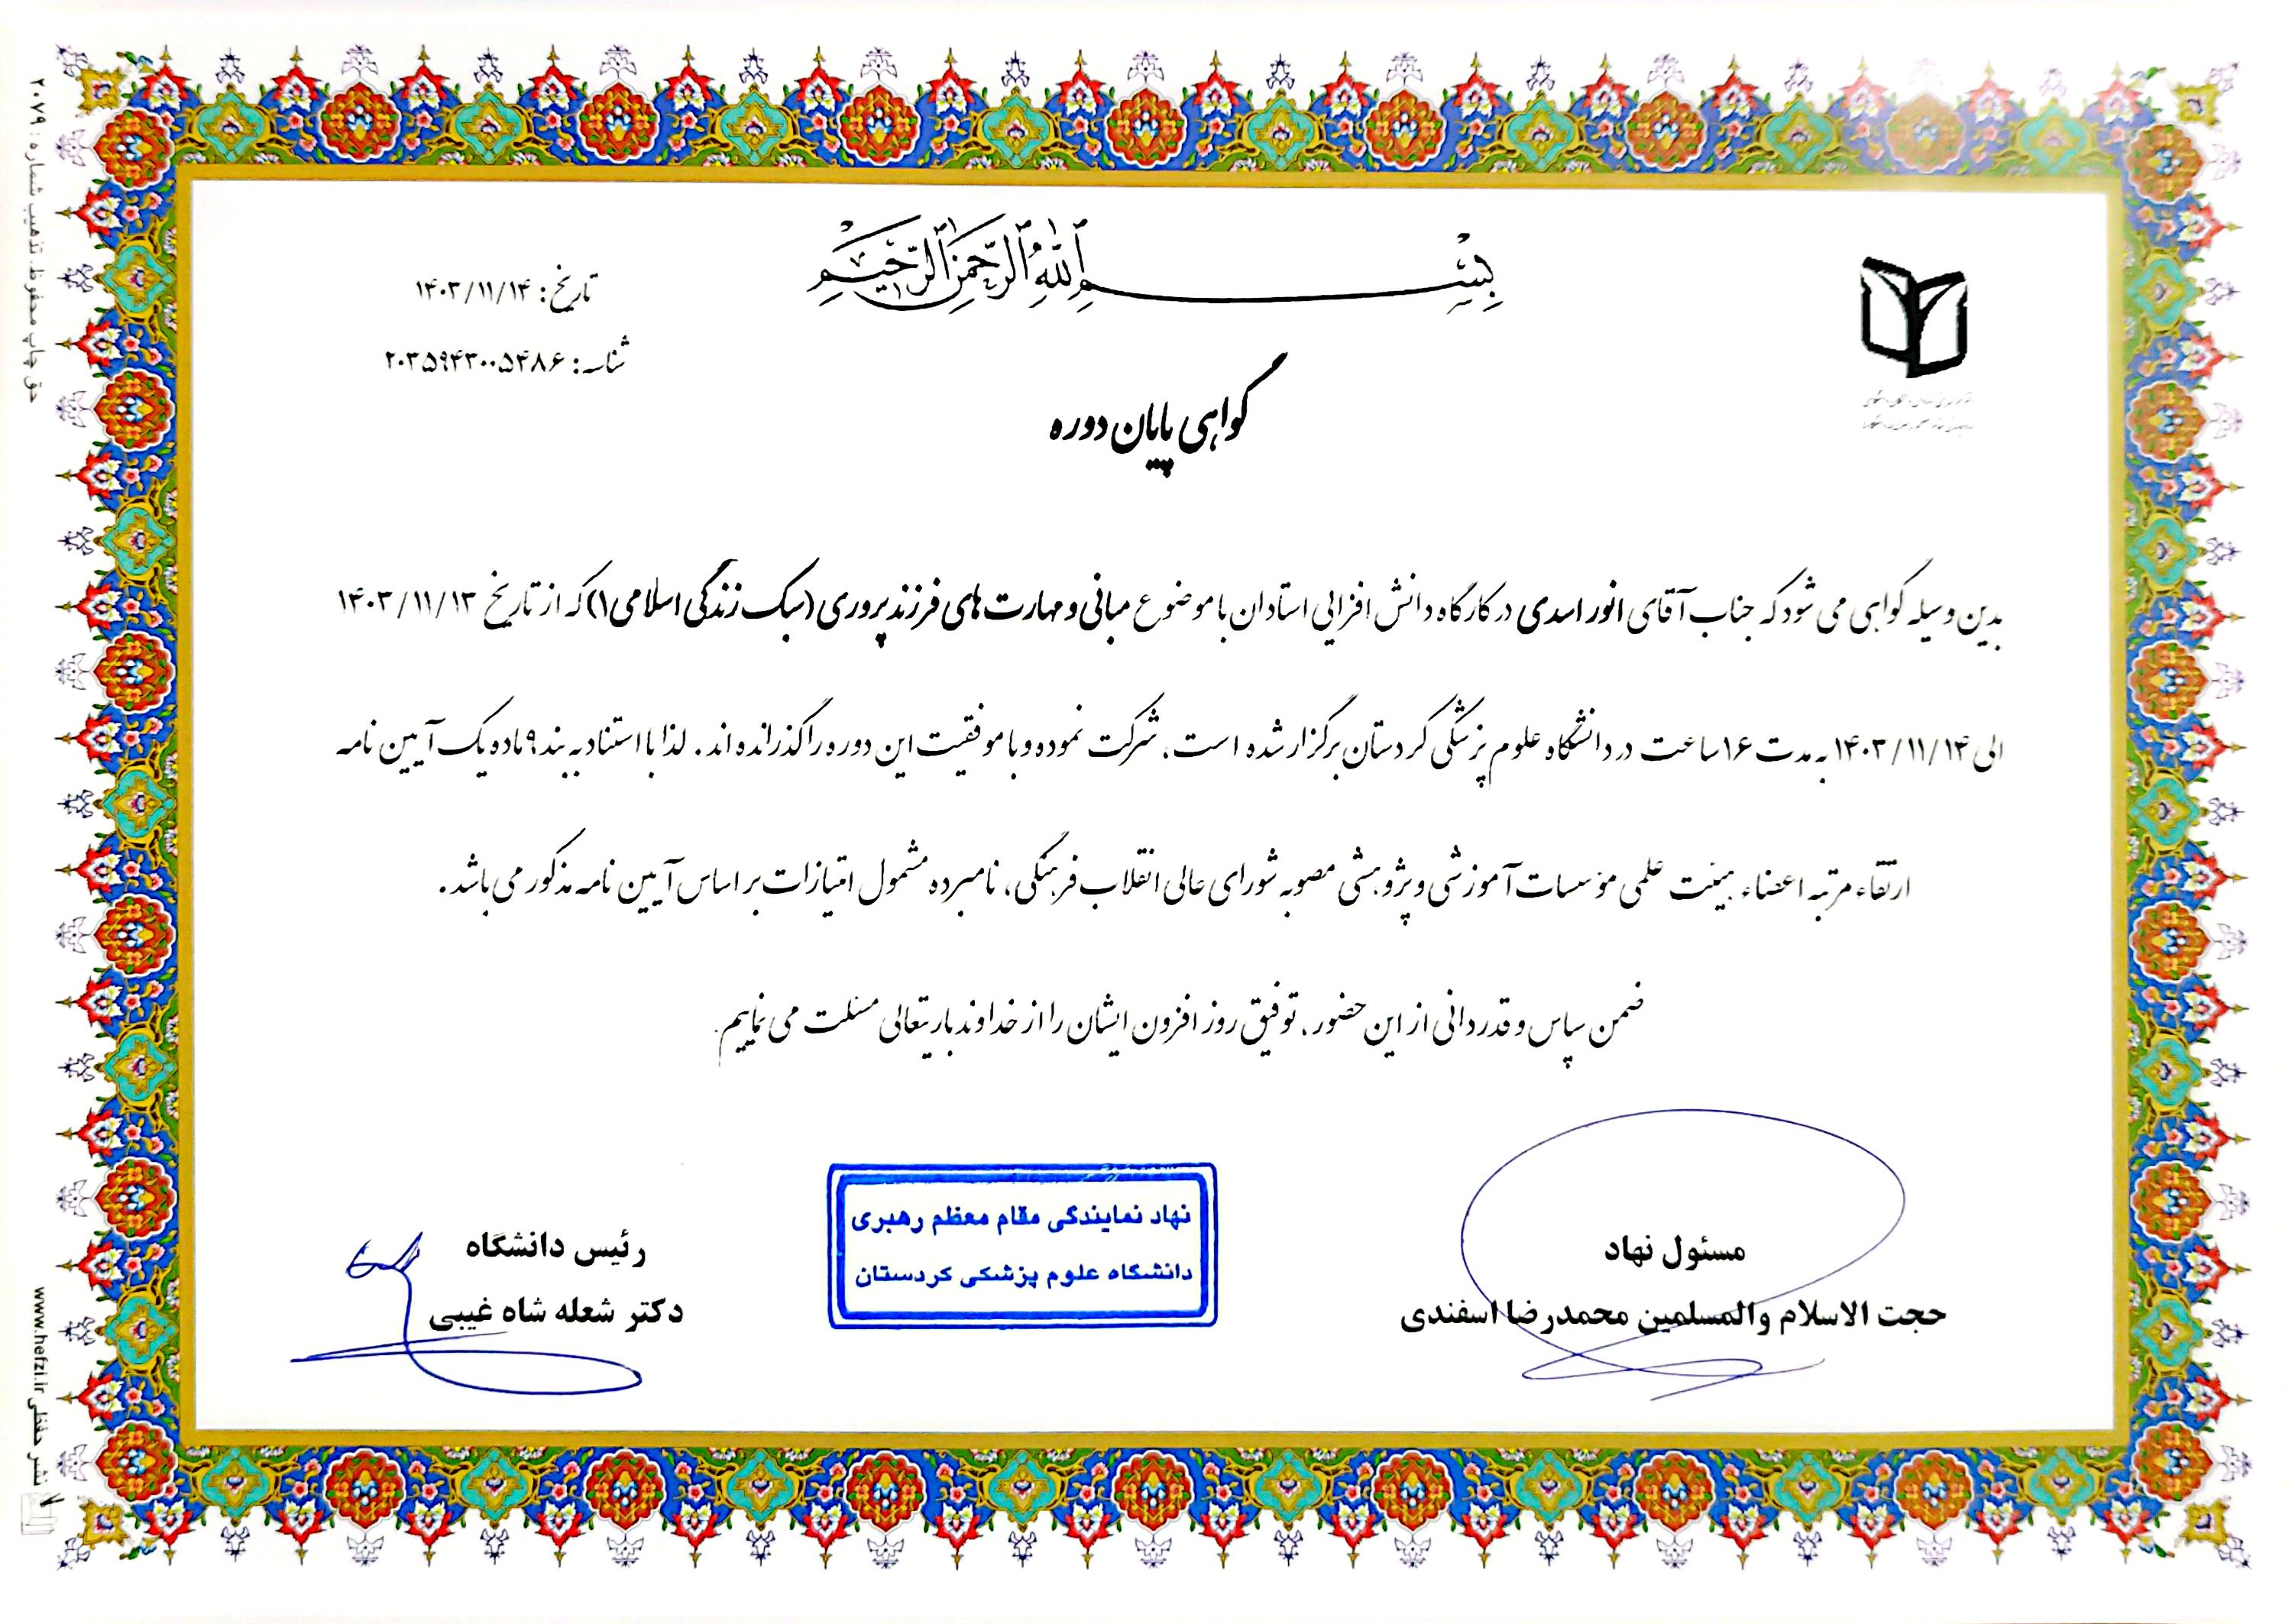 بسم الله الرحمن الرحیم
تاریخ: ۱۴۰۳/۱۱/۱۴
شناسه: ۲۰۳۵۹۴۳۰۰۵۴۸۶
گواهی پایان دوره
بدین وسیله گواهی می شود که جناب آقای انور اسدی در کارگاه دانش افزایی استادان با موضوع مبانی و مهارت های فرزندپروری (سبک زندگی اسلامی۱) که از تاریخ ۱۴۰۳/۱۱/۱۳
الی ۱۴۰۳/۱۱/۱۴ به مدت ۱۶ ساعت در دانشگاه علوم پزشکی کردستان برگزار شده است، شرکت نموده و با موفقیت این دوره را گذرانده اند. لذا با استناد به بند ۹ ماده یک آیین نامه
ارتقاء مرتبه اعضاء هیئت علمی مؤسسات آموزشی و پژوهشی مصوبه شورای عالی انقلاب فرهنگی، نامبرده مشمول امتیازات بر اساس آیین نامه مذکور می باشد.
ضمن سپاس و قدردانی از این حضور، توفیق روز افزون ایشان را از خداوند باریتعالی مسئلت می نماییم.
مسئول نهاد
حجت الاسلام والمسلمین محمدرضا اسفندی
نهاد نمایندگی مقام معظم رهبری
دانشگاه علوم پزشکی کردستان
رئیس دانشگاه
دکتر شعله شاه غیبی
حق چاپ محفوظ. تذهیب شماره: ۲۰۷۹
نشر حفظی www.hefzi.ir